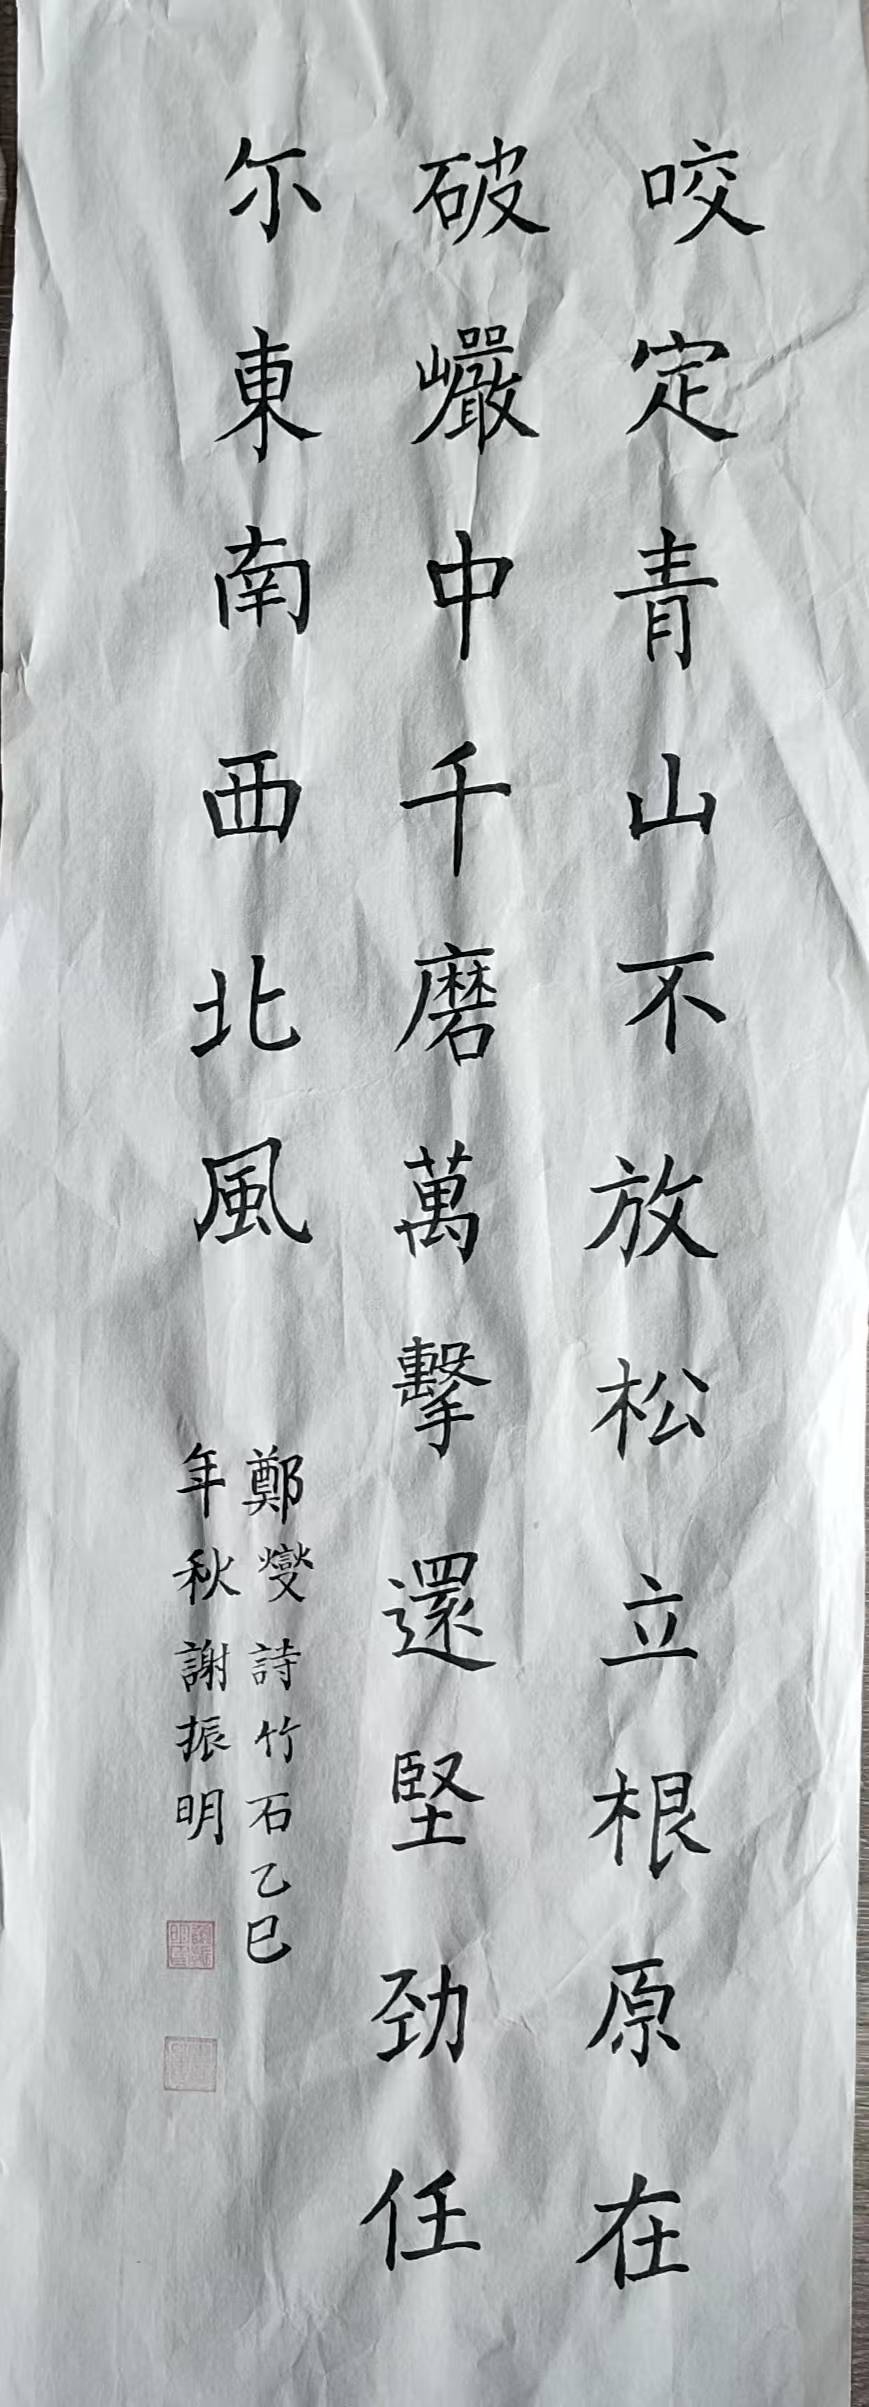 咬定青山不放松立根原在
破巖中千磨萬擊還堅劲任
尓東南西北風
鄭燮詩竹石乙巳
年秋謝振明